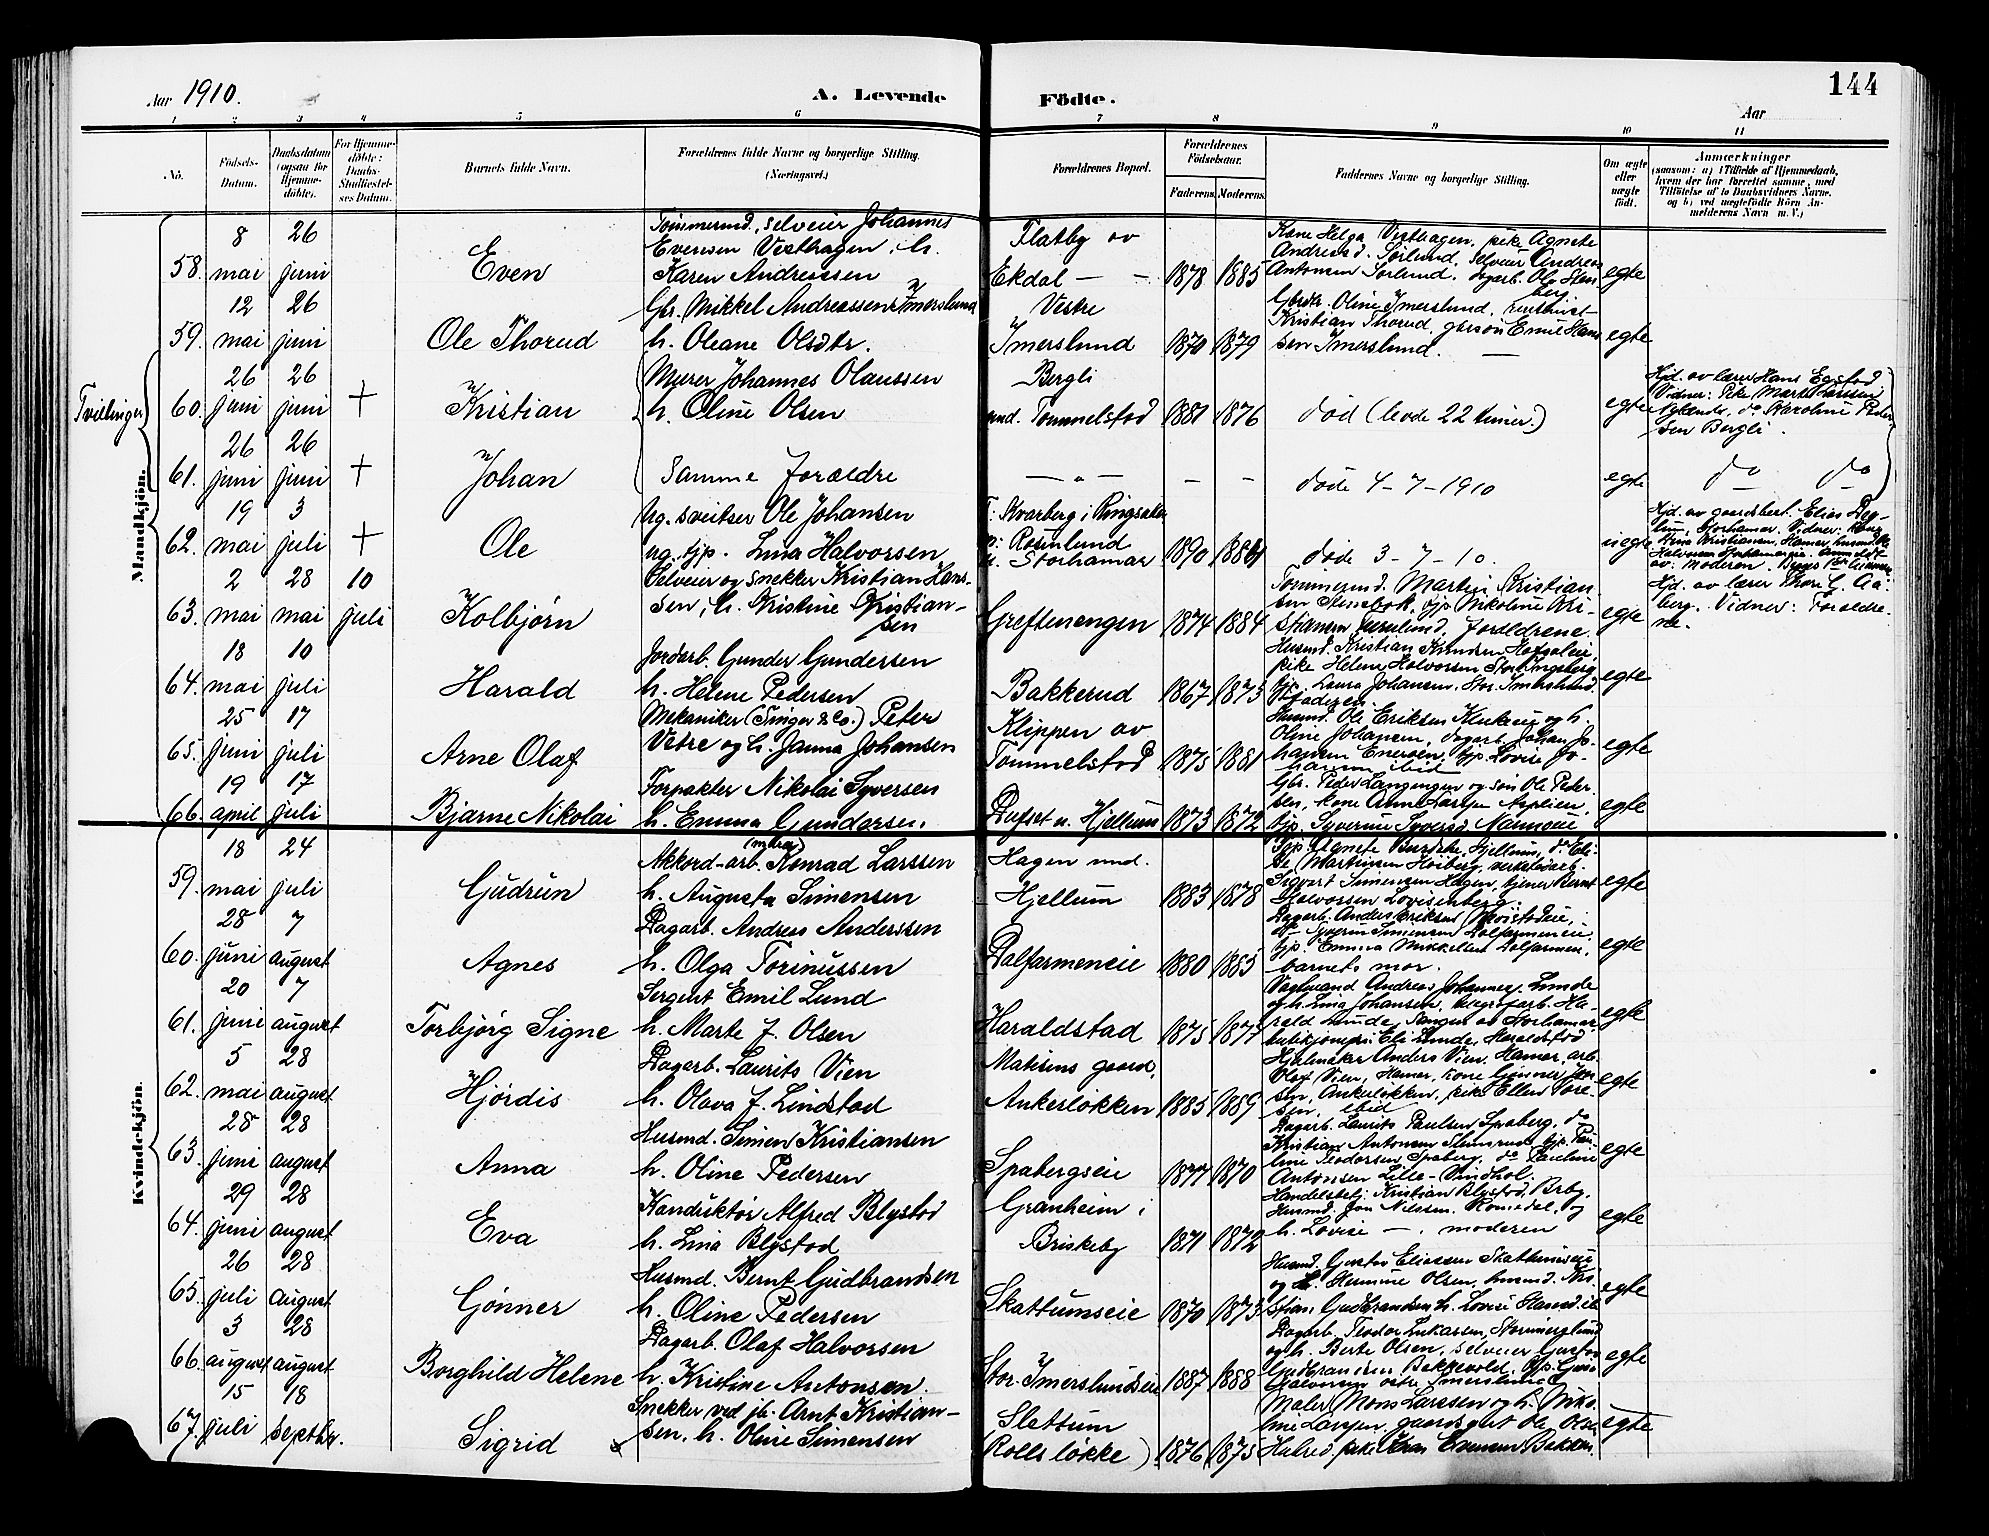 144
Aar 1910. A. Levende Födte. Aar
1 2 3 4 5 6 7 8 9 10 11
No. Födsels-Datum. Daabsdatum (ogsaa for Hjemmedöbte). For Hjemmedöbte: Daabs-Stadfæstelses Datum. Barnets fulde Navn. Forældrenes fulde Navne og borgerlige Stilling. (Næringsvei.) Forældrenes Bopæl. Forældrenes Födselsaar. Faderens. Moderens. Faddernes Navne og borgerlige Stilling. Om ægte eller uægte født. Anmærkninger
(saasom: a) i Tilfælde af Hjemmedaab, hvem der har forrettet samme, med Tilføielse af to Daabsvidners Navne. og b) ved uægtefödte Börn Anmelderens Navn m. V.)
Mandkjön.
58. 8 mai 26 juni Even
Tömmermd., selveier Johannes
Evensen Vesthagen, h.
Karen Andreassen
Flatby av
Ekdal 1878 1885
Kone Helga Vesthagen, pike Agnete
Andreasd. Sørlund, selveier Andreas
Antonsen Sørlund, dagarb. Ole Stenberg
egte
59. 12 mai 26 juni Ole Thorud
Gbr. Mikkel Andreassen Imerslund
h. Oleane Olsdtr.
Vestre
Imerslund 1870 1879
Gbrdtr. Oline Imerslund,
Kristian Thorud, gbrsön Emil Hansen Imerslund.
egte
Tvillinger
60. 26 juni 26 juni + Kristian
Murer Johannes Olaussen
h. Oline Olsen
Bergli
und. Tommelstad 1881 1876
död (levde 22 timer.)
egte
Hjd. av lærer Hans Egstad
Vidner: Pike Marte Larssen
Nylænde, do Karoline Pedersen Bergli.
61. 26 juni 26 juni + Johan
Samme forældre
— „ — — —
döde 4-7-1910
egte
do do
62. 19 mai 3 juli + Ole
Ug. sveitser Ole Johansen
ug. tjp. Lina Halvorsen
F: Kvarberg i Ringsaker
m: Rosenlund
u. Storhamar 1890 1884
döde 3-7-10.
uegte
Hjd. av gaardsbest. Elias
Storhamar. Vidner:
Kristiansen, Hamar,
Halvorsen Storhamareie. Anmeldt
av: moderen.
63. 2 mai 28 mai 10 juli Kolbjörn
Selveier og snekker Kristian Hansen, h. Kristine Kristiansen
Greftenengen 1874 1884
Tømmermd. Martin Kristiansen Stensbak, tjp. Nikoline Kristiansen Imerslund, forældrene.
egte
Hjd. av lærer Thore C. Aaberg. Vidner: Forældrene.
64. 18 mai 10 juli Harald
Jordarb. Gunder Gundersen
h. Helene Pedersen
Bakkerud 1867 1873
Husmd. Kristian Knudsen Hofsaleie,
pike Helene Halvorsen Stor.
tjp. Laura Johansen, Stor. Imerslund,
faderen.
egte
65. 25 juni 17 juli Arne Olaf
Mekaniker (Singer & Co.) Peter
Vetre og h. Janna Johansen
Klippen av
Tommelstad 1875 1881
Husmd. Ole Eriksen Klukeie og h.
Oline Johansen, dagarb. Johan Johansen Enersen, tjp. Lovise Johansen ibid
egte
66. 19 april 17 juli Bjarne Nikolai
Forpakter Nikolai Syversen
h. Emma Gundersen.
Dufset u. Hjellum 1873 1872
Gbr. Peder Langengen og sön Ole Pedersen, kone Anne Larsen Asplien,
tjp. Syverine Syversd. Narmoeie
egte
Kvindekjön.
59. 18 mai 24 juli Gudrun
Akkord-arb. (murer) Konrad Larssen
h. Augusta Simensen
Hagen und.
Hjellum 1883 1878
Tjp. Agnete Hjellum, do Elise Martinsen Höiberg, verkstedarb.
Sigvart Simensen Hagen, tjener Bernt
Halvorsen Lovisenberg.
egte
60. 28 juni 7 august Agnes
Dagarb. Andreas Anderssen
h. Olga Torinussen
Dalfarmeneie 1880 1885
Dagarb. Anders Eriksen
do Syverin Simensen Dalfarmeneie,
tjp. Emma Mikkelsen Dalfarmen,
barnets mor.
egte
61. 20 juni 7 august Torbjörg Signe
Sergent Emil Lund
h. Marte J. Olsen
Haraldstad 1875 1877
Vagtmand Andreas Johannes. Lunde
og h. Lina Johansen, Harald Lunde, Sangen av Storhamar,
Eli Lunde, Haraldstad
egte
62. 5 mai 28 august Hjördis
Dagarb. Laurits Vien
h. Olava J. Lindstad
Matisens gaard,
Ankerlökken 1885 1889
Hjulmaker Anders Vien, Hamar, arb.
Olaf Vien, Hamar, kone Gunner Jensen, Ankerløkken, pike Ellen Toresen. ibid
egte
63. 28 juni 28 august Anna
Husmd. Simen Kristiansen
h. Oline Pedersen
Spabergseie 1877 1870
Dagarb. Laurits Paulsen Spaberg, do
Kristian Antonsen Stensrud, tjp. Pauline Teodorsen Spaberg, do Pauline
Antonsen Lille-Vindhol.
egte
64. 29 juni 28 august Eva
Konduktör Alfred Blystad
h. Lina Blystad
Granheim i
Briskeby 1871 1872
Handelsbetj. Kristian Blystad, Brby.
Husmd. Jon Nilssen, Romedal, og
h. Lovise —, moderen
egte
65. 26 juli 28 august Gönner
Husmd. Bernt Gudbrandsen
h. Oline Pedersen
Skattumseie 1870 1873
Husmd. Gustav Eliassen Skattumseie
og h. Hermine Olsen, husmd. Kristian Gudbrandsen, h. Lovise Hansd. ib
egte
66. 3 august 28 august Borghild Helene
Dagarb. Olaf Halvorsen
h. Kristine Antonsen.
Stor. Imerslundseie 1887 1888
Dagarb. Teodor Lukassen, Storimerslund
og h. Berte Olsen, selveier Gustav
Gudbrandsen Bakkevold, tjp.
Halvorsen östre Imerslund
egte
67. 15 juli 18 septbr. Sigrid
Snekker ved jb. Arnt Kristiansen, h. Oline Simensen
Slettum
(Rolls lökke) 1876 1875
Maler Mons Larssen og h. Nikoline Larsen, gaardsgut Ole Olsen
Halred, pike Evensen Bakken.
egte